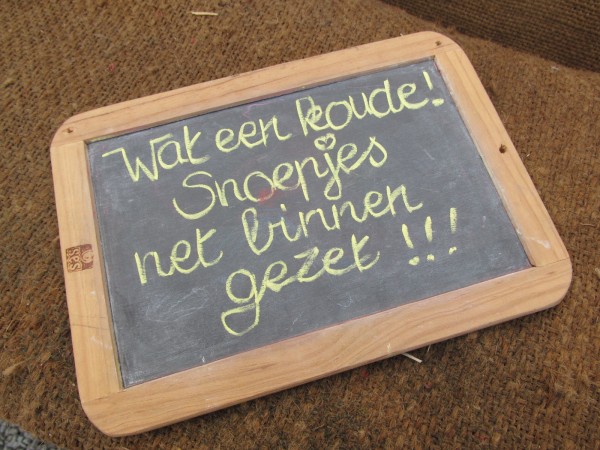 Wat een koude!
Snoepjes
net binnen
gezet !!!